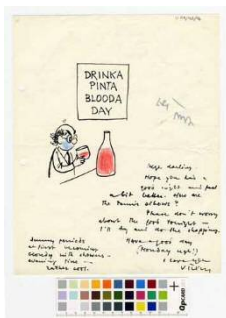 DRINKA
PINTA
BLOODA
DAY
darling
Hope you had a
good night and feel
a bit better. How are
the tennis elbows?
Please don't worry
about the food tonight -
I'll try and do the shopping.
Have a good day
(Monday ugh!)
I love you
Sunny periods
at first becoming
cloudy with showers -
rather cool.